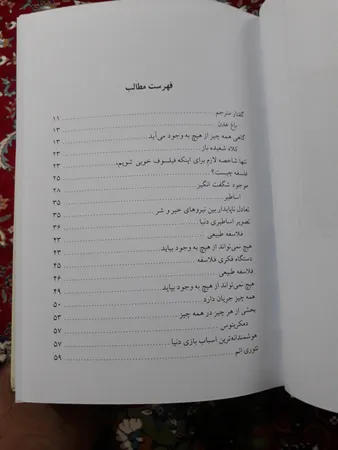 فهرست مطالب
گفتار مترجم ۱۱
باغ عدن ۱۳
گاهی همه چیز از هیچ به وجود می‌آید ۱۳
کلاه شعبده باز ۲۳
تنها شاخصه لازم برای اینکه فیلسوف خوبی شویم، ۲۳
فلسفه چیست؟ ۲۵
موجود شگفت انگیز ۲۸
اساطیر ۳۵
تعادل ناپایدار بین نیروهای خیر و شر ۳۵
تصویر اساطیری دنیا ۳۶
فلاسفه طبیعی ۴۳
هیچ نمی‌تواند از هیچ به وجود بیاید ۴۳
دستگاه فکری فلاسفه ۴۵
فلاسفه طبیعی ۴۶
هیچ نمی‌تواند از هیچ به وجود بیاید ۴۹
همه چیز جریان دارد ۵۰
بخشی از هر چیز در همه چیز ۵۳
دمکریتوس ۵۷
هوشمندانه‌ترین اسباب بازی دنیا ۵۷
تئوری اتم ۵۹